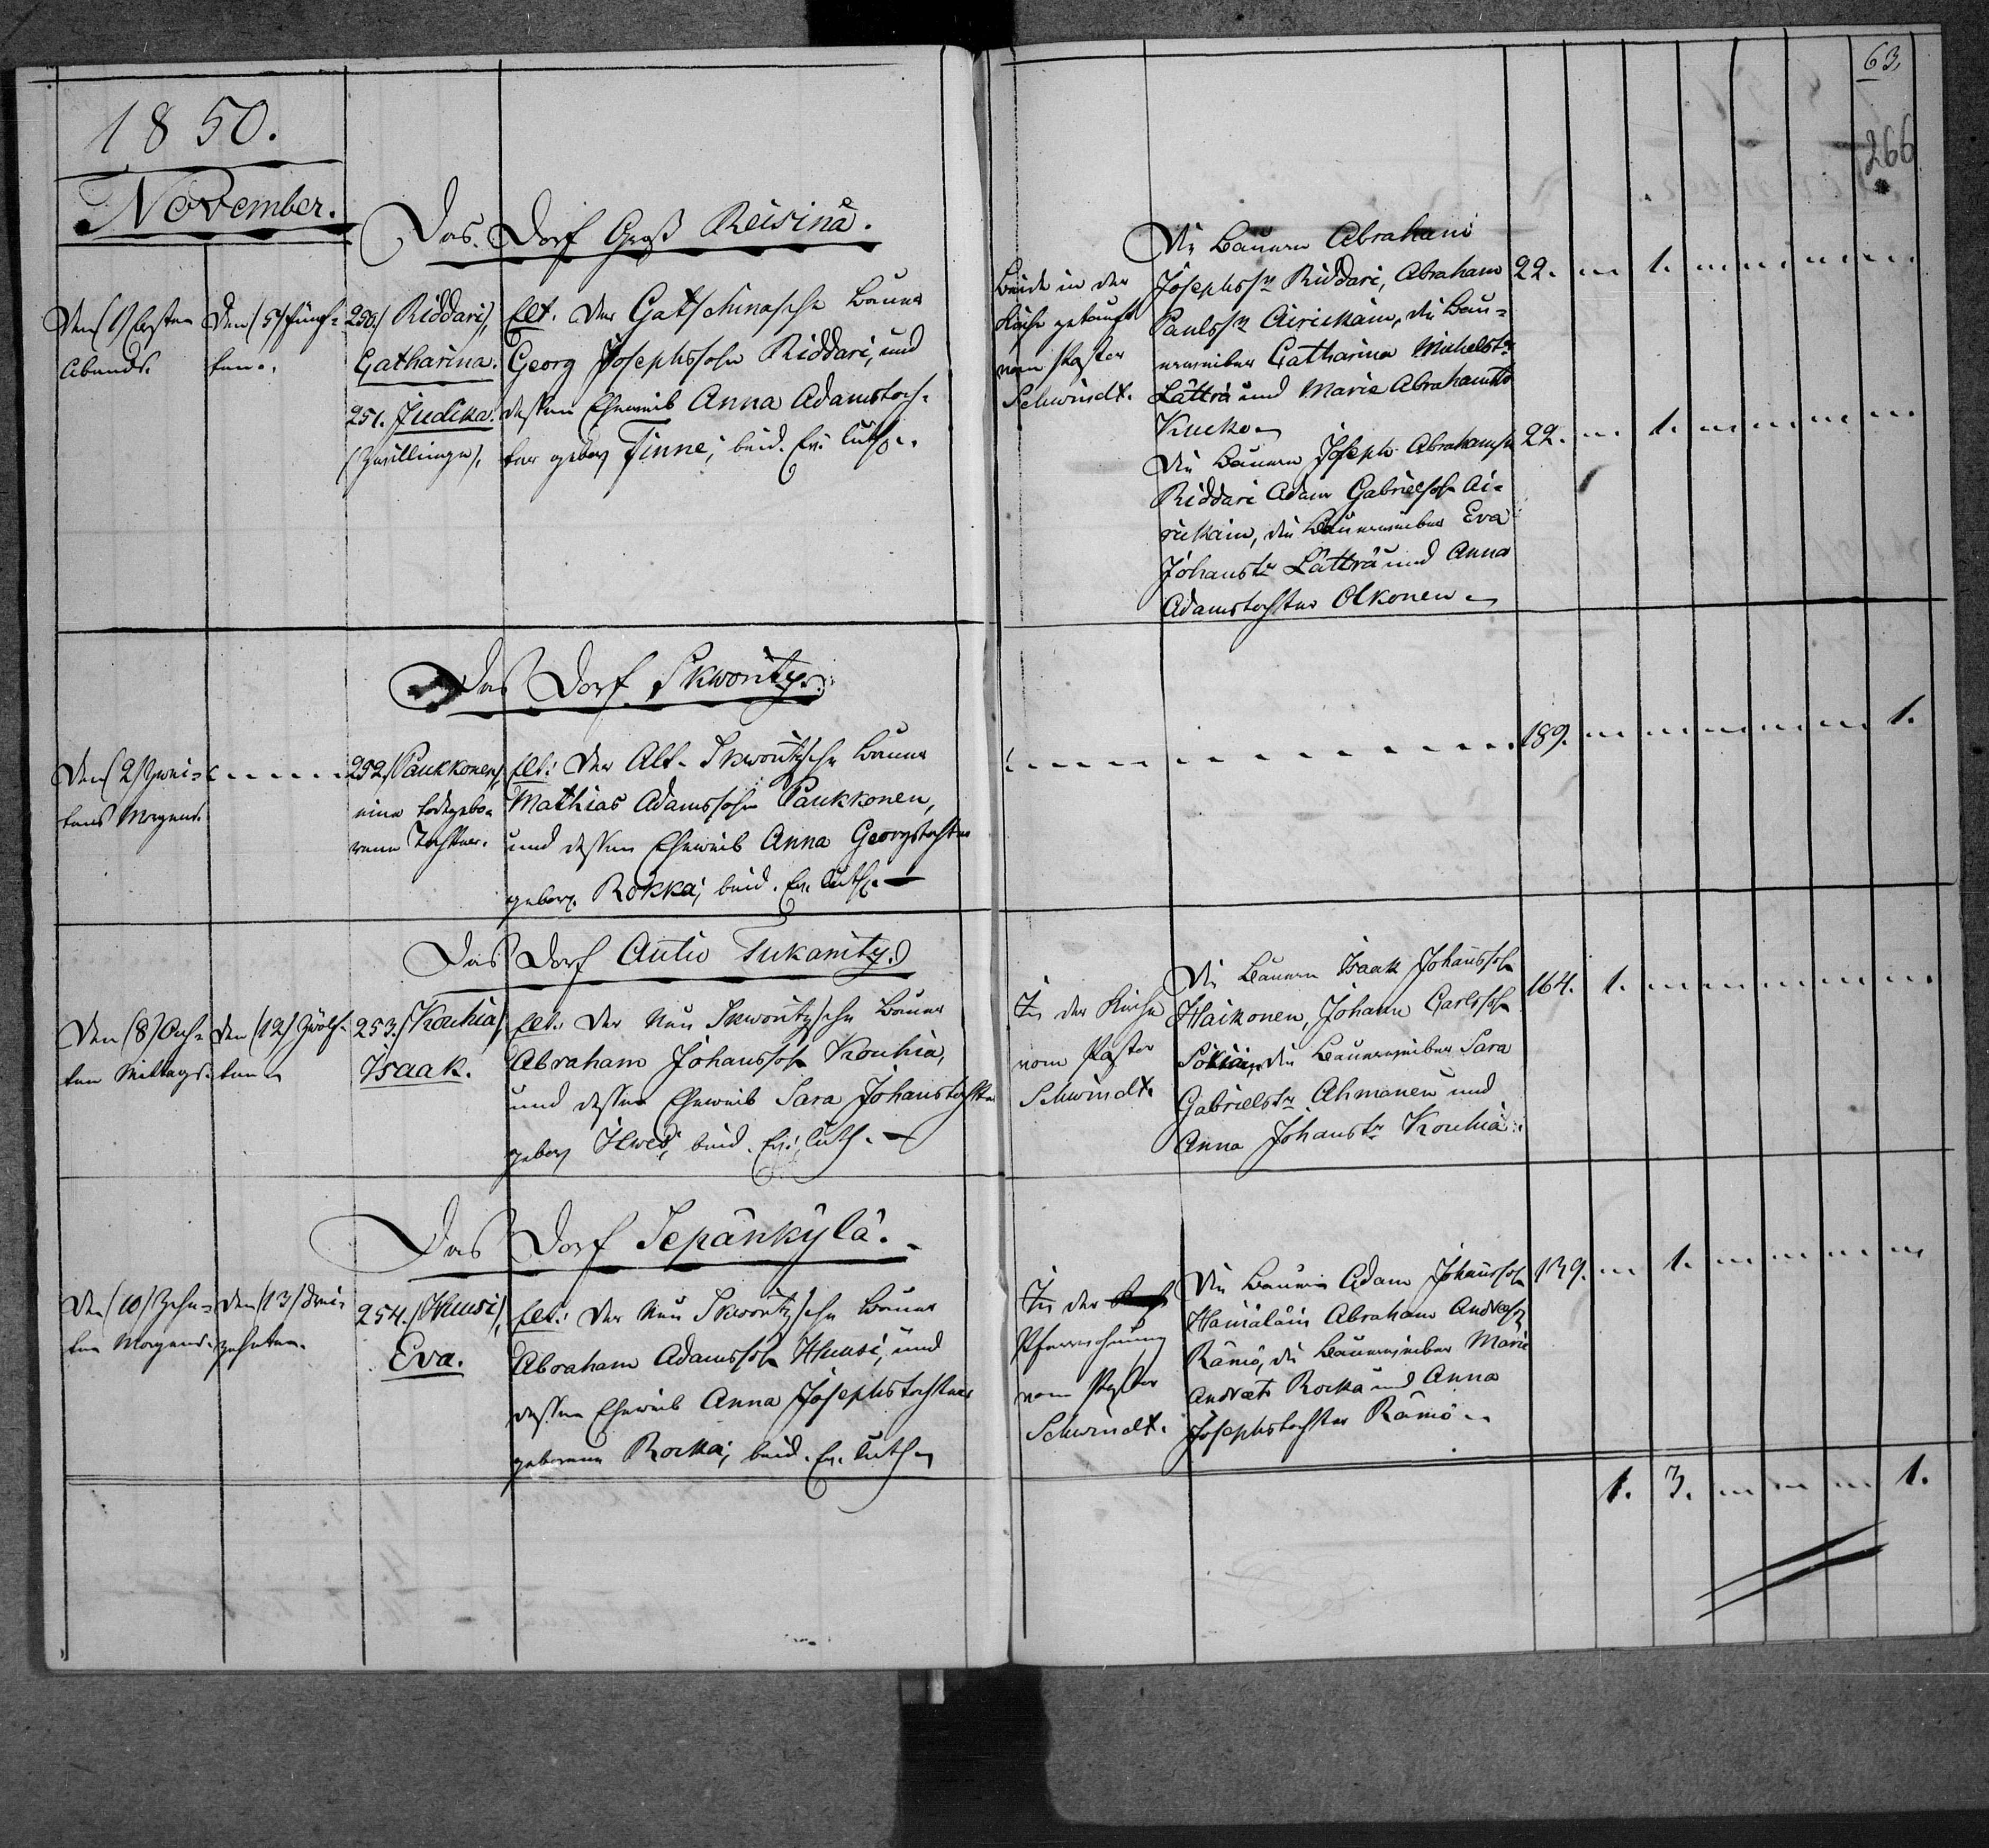 63.
266
1850.
November.
Das Dorf Groß Reisinä.
Den (1) ersten
Abends.
Den (5) fünf=
ten..
250. (Riddari),
Catharina.
251. Judika.
(Zwillinge).
Elt. Der Gatschinasche Bauer
Georg Josephssohn Riddari, und
dessen Eheweib Anna Adamstoch-
ter gebor. Tinne; beid. Ev. Luth..
Beide in der
Kirche getauft
vom Pastor
Schwindt.
Die Bauern Abraham
Josephss. Riddari, Abraham
Paulss. Airickain, die Bau=
ernweiber Catharina Michelst.
Lätträ und Maria Abrahamsto
Kucko
22. 1.
Die Bauern Joseph Abrahamss.
Riddari Adam Gabrielsoh Ai=
rickain, die Bauernweiber Eva
Johanstr Lätträ und Anna
Adamstochter Olkonen
22. 1.
Das Dorf Skworitz.
Den (2) Zwei=
ten Morgens.
252. (Paukkonen),
eine todtgebo=
rene Tochter.
Elt: Der Alt-Skworitzsche Bauer
Mathias Adamssohn Paukkonen,
und dessen Eheweib Anna Georgstochter
gebor. Rokka; beid. Ev. Luth.
189. 1.
Das Dorf Autio Tukanitz.
Den (8) Ach=
ten Mittags.
Den (12) Zwölf=
ten
253. (Kouhia)
Isaak.
Elt. Der Neu Skworitzsche Bauer
Abraham Johanssoh Kouhia,
und dessen Eheweib Sara Johanstochter
gebor. Ilwes; beid. Ev. Luth.
In der Kirche
vom Pastor
Schwindt.
Die Bauern Isaak Johanssoh
Haikonen, Johann Carlssoh
die Bauernweiber Sara
Gabrielstr Ahmanen und
Anna Johanstr Kouhia.
164. 1.
Das Dorf Sepänkylä.
Den (10) Zehn=
ten Morgens.
Den (13) Drei=
zehnten.
254. (Huusi),
Eva.
Elt: Der Neu Skworitzsche Bauer
Abraham Adamssoh Huusi, und
dessen Eheweib Anna Josephstochter
geborene Rocka; beid. Ev. Luth
In der
Pfarrwohnung
vom Pastor
Schwindt.
Die Bauern Adam Johanssoh
Hämäläin Abraham Andreass
Rämö, die Bauernweiber Maria
Andreast Rocka und Anna
Josephstochter Rämö
139. 1.
1. 3. 1.